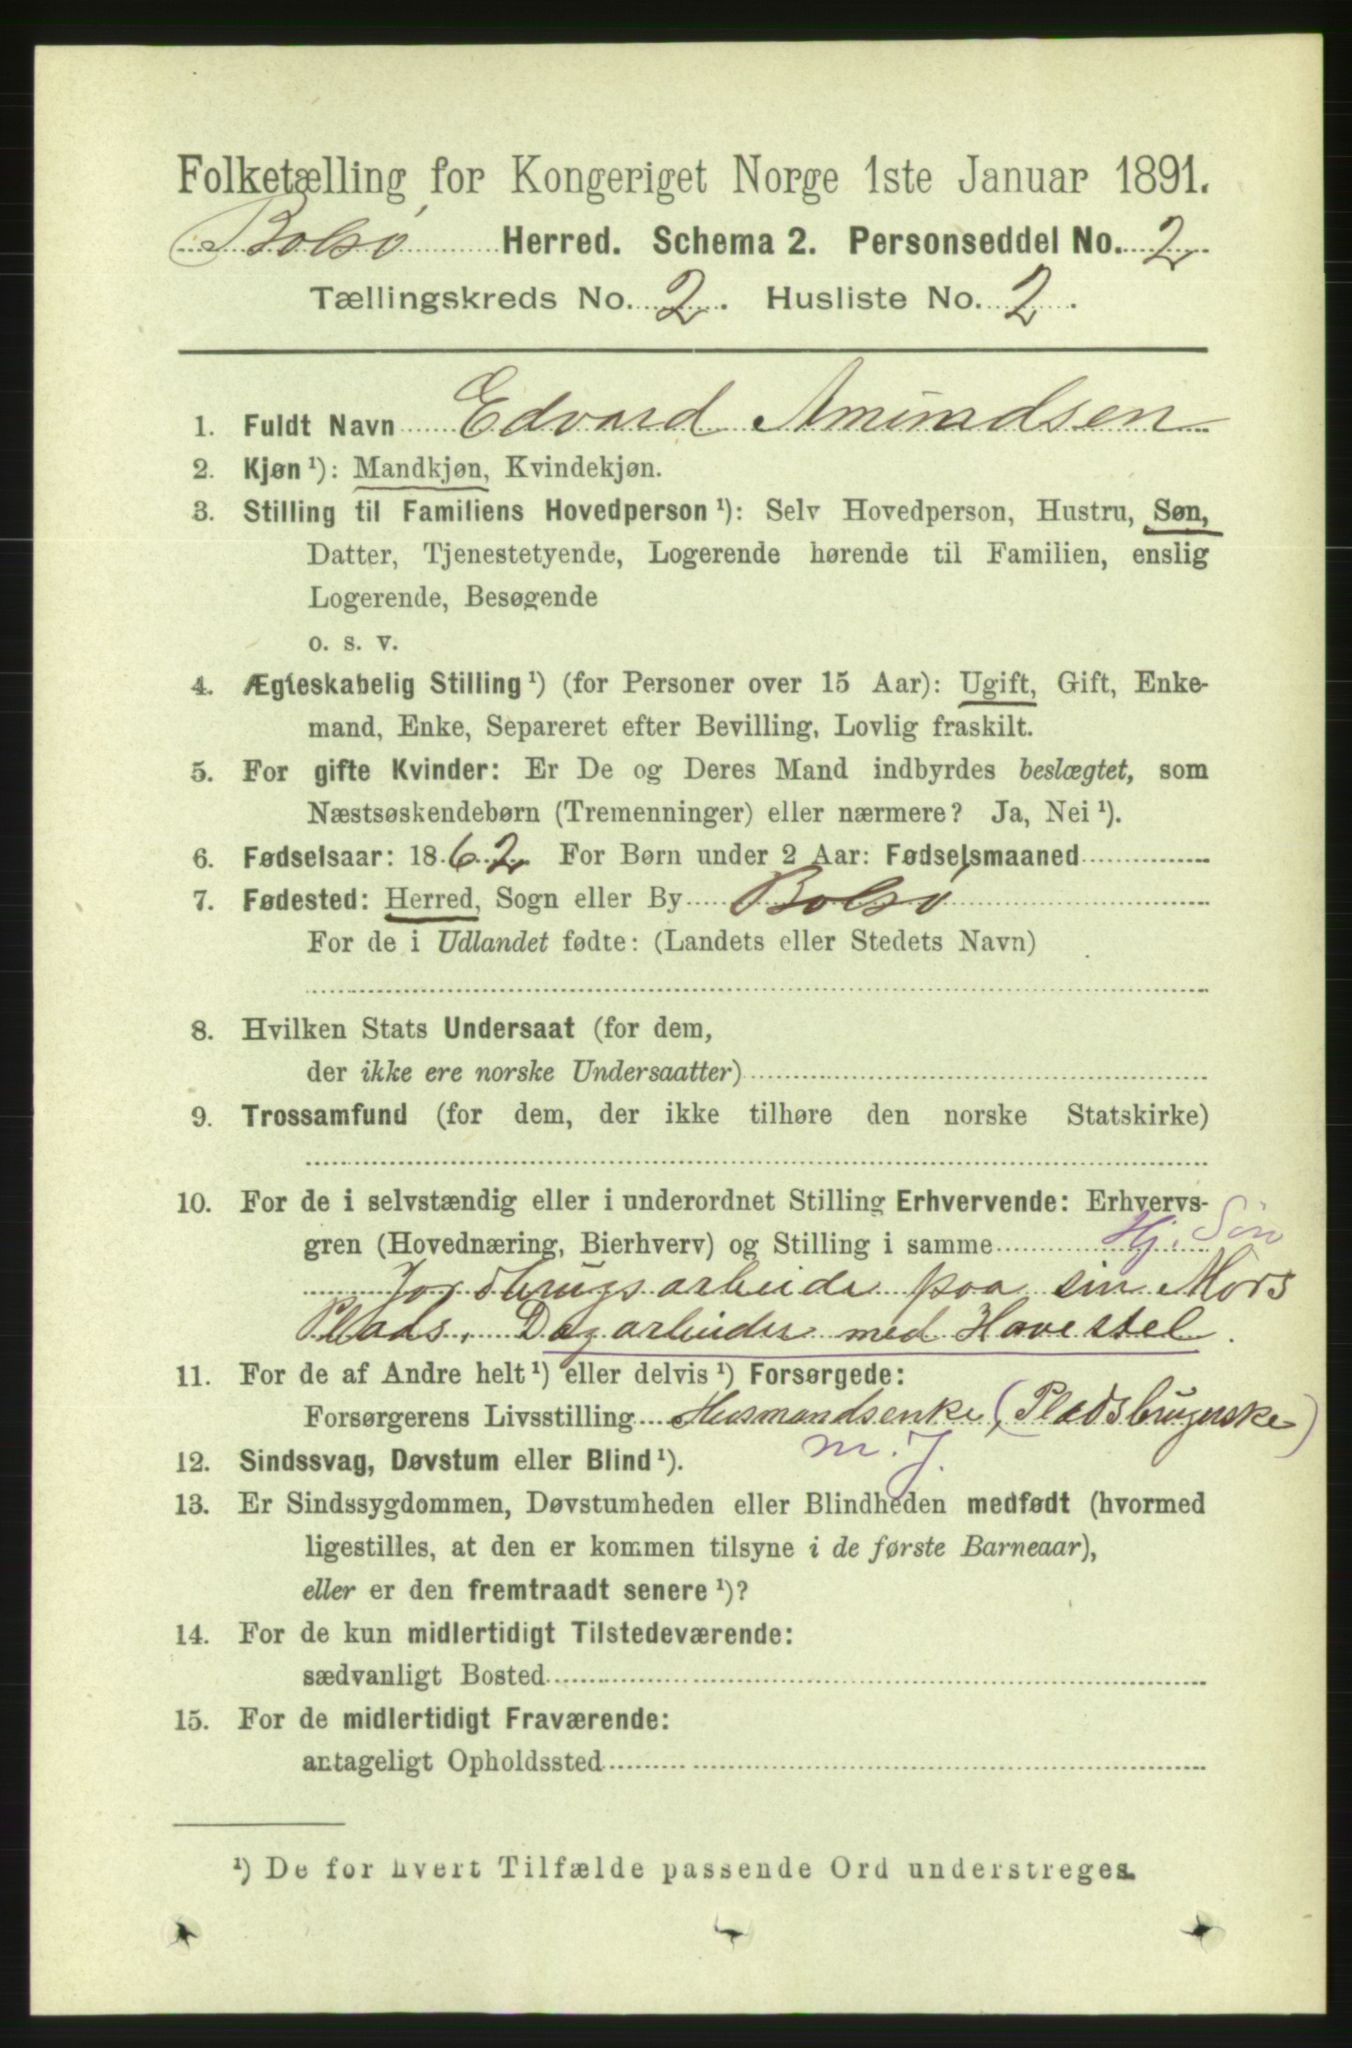 Folketælling for Kongeriget Norge 1ste Januar 1891.
Bolsø Herred. Schema 2. Personseddel No. 2
Tællingskreds No. 2. Husliste No. 2.
1. Fuldt Navn Edvard Amundsen
2. Kjøn ¹): Mandkjøn, Kvindekjøn.
3. Stilling til Familiens Hovedperson ¹): Selv Hovedperson, Hustru, Søn,
Datter, Tjenestetyende, Logerende hørende til Familien, enslig
Logerende, Besøgende
o. s. v.
4. Ægteskabelig Stilling ¹) (for Personer over 15 Aar): Ugift, Gift, Enke-
mand, Enke, Separeret efter Bevilling, Lovlig fraskilt.
5. For gifte Kvinder: Er De og Deres Mand indbyrdes beslægtet, som
Næstsøskendebørn (Tremenninger) eller nærmere? Ja, Nei ¹).
6. Fødselsaar: 1862 For Børn under 2 Aar: Fødselsmaaned
7. Fødested: Herred, Sogn eller By Bolsø
For de i Udlandet fødte: (Landets eller Stedets Navn)
8. Hvilken Stats Undersaat (for dem,
der ikke ere norske Undersaatter)
9. Trossamfund (for dem, der ikke tilhøre den norske Statskirke)
10. For de i selvstændig eller i underordnet Stilling Erhvervende: Erhvervs-
gren (Hovednæring, Bierhverv) og Stilling i samme Hj. Søn
Jordbrugsarbeide paa sin Mors
Plads. Dagarbeider med Hovestel.
11. For de af Andre helt ¹) eller delvis ¹) Forsørgede:
Forsørgerens Livsstilling Husmandsenke, (Pladsbrugerske)
m. J.
12. Sindssvag, Døvstum eller Blind ¹).
13. Er Sindssygdommen, Døvstumheden eller Blindheden medfødt (hvormed
ligestilles, at den er kommen tilsyne i de første Barneaar),
eller er den fremtraadt senere ¹)?
14. For de kun midlertidigt Tilstedeværende:
sædvanligt Bosted
15. For de midlertidigt Fraværende:
antageligt Opholdssted
¹) De for hvert Tilfælde passende Ord understreges.